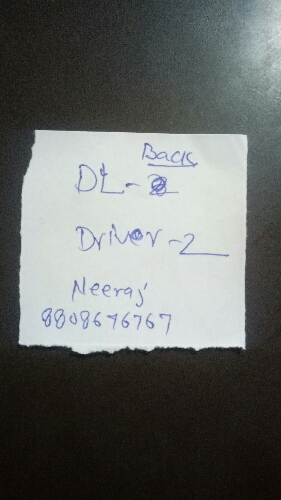 Back
DL-2
Driver-2
Neeraj
8808676767